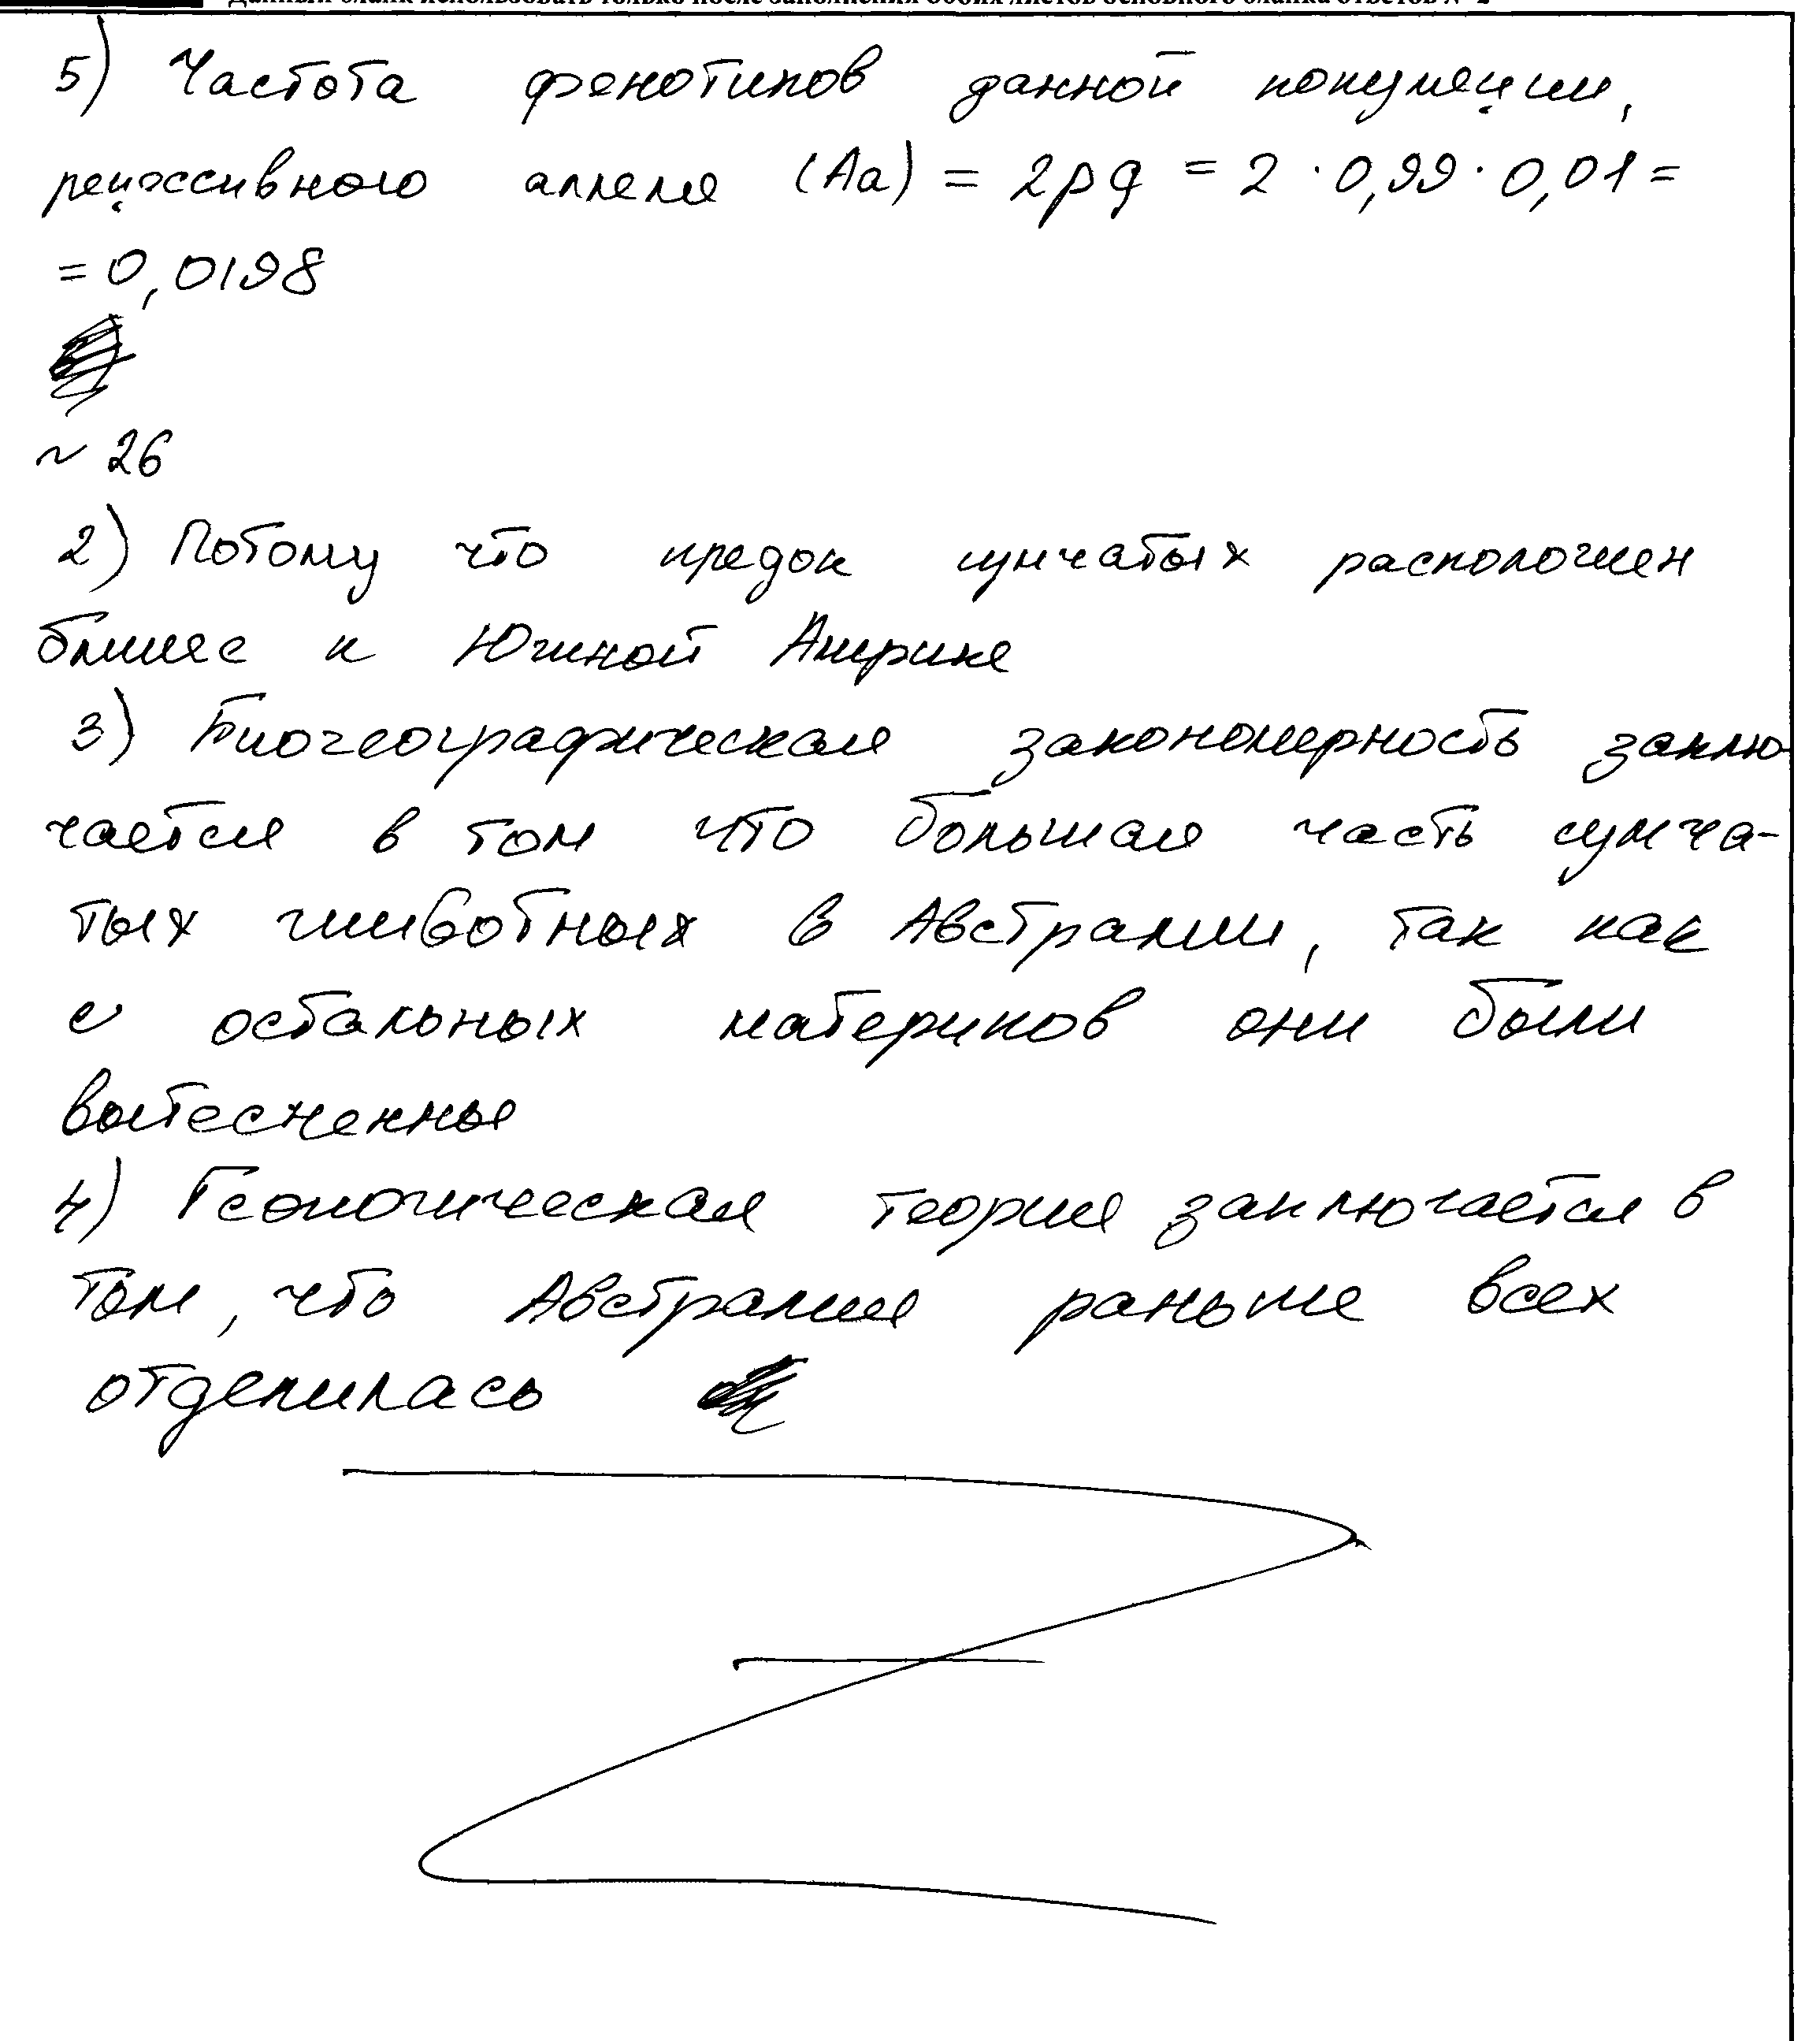 Данный бланк использовать только после заполнения обоих листов основного бланка ответов № 2
5) Частота фенотипов данной популяции,
рецессивного аллеля (Аа) = 2pq = 2 · 0,99 · 0,01 =
= 0,0198
~ 26
2) Потому что предок сумчатых расположен
ближе к Южной Америке
3) Биогеографическая закономерность заклю-
чается в том что большая часть сумча-
тых животных в Австралии, так как
с остальных материков они были
вытесненны
4) Геологическая теория заключается в
том, что Австралия раньше всех
отделилась